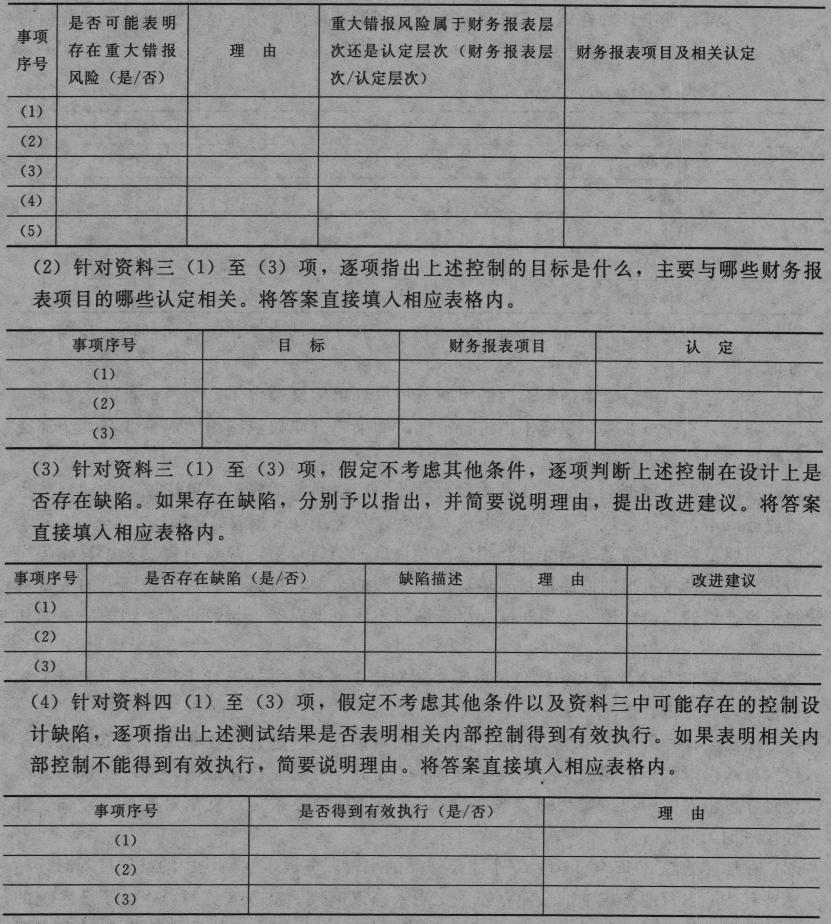 事项序号 是否可能表明存在重大错报风险（是/否） 理 由 重大错报风险属于财务报表层次还是认定层次（财务报表层次/认定层次） 财务报表项目及相关认定
（1）
（2）
（3）
（4）
（5）
（2）针对资料三（1）至（3）项，逐项指出上述控制的目标是什么，主要与哪些财务报
表项目的哪些认定相关。将答案直接填入相应表格内。
事项序号 目 标 财务报表项目 认 定
（1）
（2）
（3）
（3）针对资料三（1）至（3）项，假定不考虑其他条件，逐项判断上述控制在设计上是
否存在缺陷。如果存在缺陷，分别予以指出，并简要说明理由，提出改进建议。将答案
直接填入相应表格内。
事项序号 是否存在缺陷（是/否） 缺陷描述 理 由 改进建议
（1）
（2）
（3）
（4）针对资料四（1）至（3）项，假定不考虑其他条件以及资料三中可能存在的控制设
计缺陷，逐项指出上述测试结果是否表明相关内部控制得到有效执行。如果表明相关内
部控制不能得到有效执行，简要说明理由。将答案直接填入相应表格内。
事项序号 是否得到有效执行（是/否） 理 由
（1）
（2）
（3）